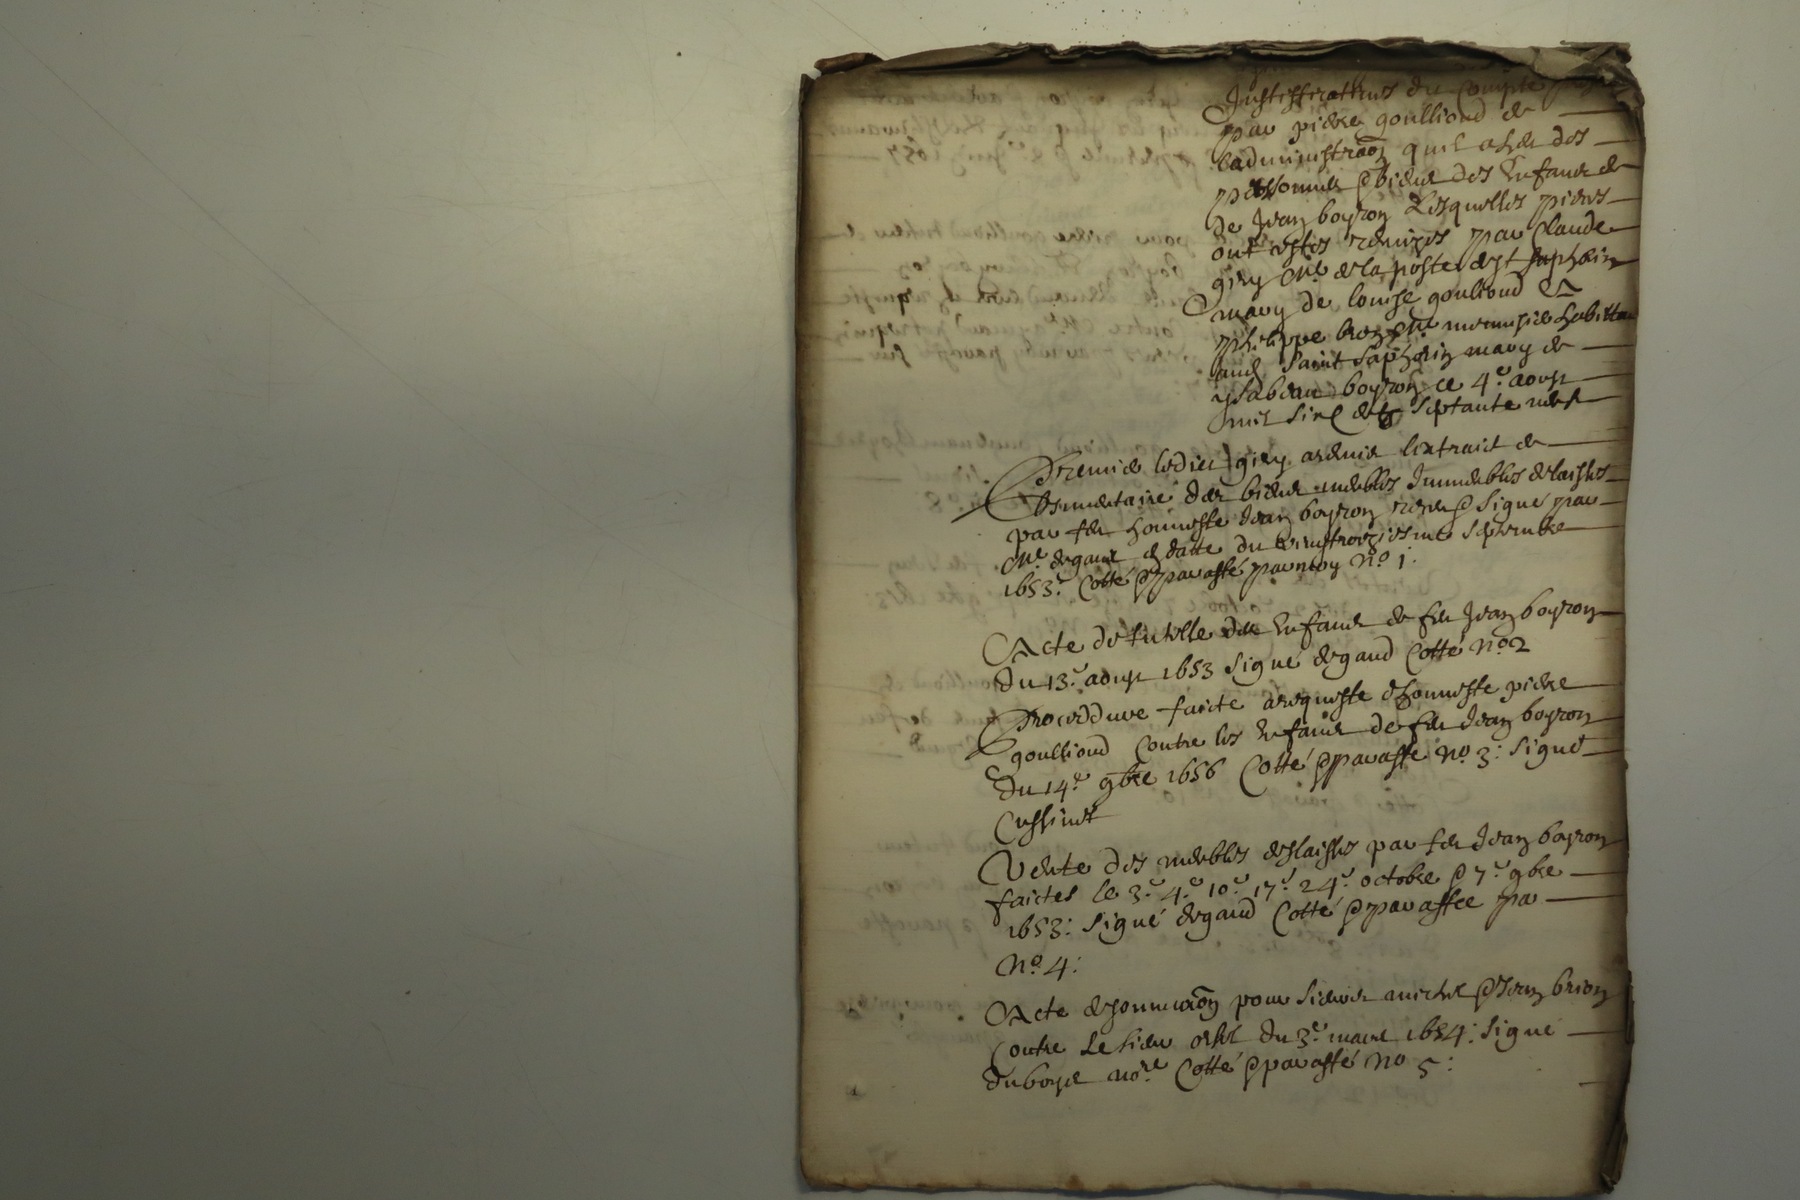 Justifficatives du Compte
par pierre goulliond de
ladministraõn quil a heu des
personnes & biens des Enfans de
de Jean boyron Lesquelles pieces
ont estés remizes par Claude
giry Me de la poste de st saphorin
mary de louise goulliond Et
phelippe Me menusier habittan
aud Saint Saphorin mary de
ysabeau boyron ce 4e aoust
mil six Cetz septante neuf
Premier ledict giry a remis lextraict de
des biens meubles Immeubles delaissés
par feu honneste Jean boyron & signé par
Me degand en datte du vingtroiziesme septembre
1653: Cotté & paraffé par moy No 1:
Acte de tutelle des Enfans de feu Jean boyron
du 13e aoust 1653 signé degand Cotté No 2
Proceddure faicte a requeste dhonneste pierre
goulliond Contre les Enfans de feu Jean boyron
du 14e 9bre 1656 Cotté & paraffe No 3: signé
Cussinet
Vente des meubles deslaissés par feu Jean boyron
faictes le 3e 4e 10e 17e 24e octobre & 7e 9bre
1653: signé degand Cotté & paraffee pa
No 4:
Acte de sommaõn pour sieurs michel & Jean brion
Contre Le sieur du 3e mars 1654: signé
duboys nore Cotté & paraffé No 5: